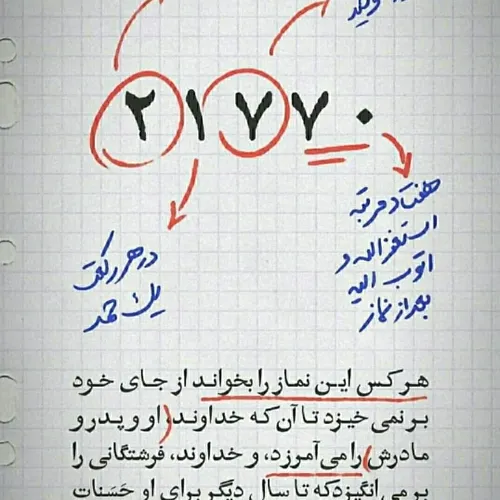 ۲۱۷۷۰
هفتاد مرتبه
استغفرالله و
اتوب الیه
بعد از نماز
در هر رکعت
یک حمد
هر کس این نماز را بخواند از جای خود
بر نمی خیزد تا آن که خداوند، او و پدر و
مادرش را می آمرزد، و خداوند، فرشتگانی را
بر می انگیزد که تا سال دیگر برای او حَسَنات